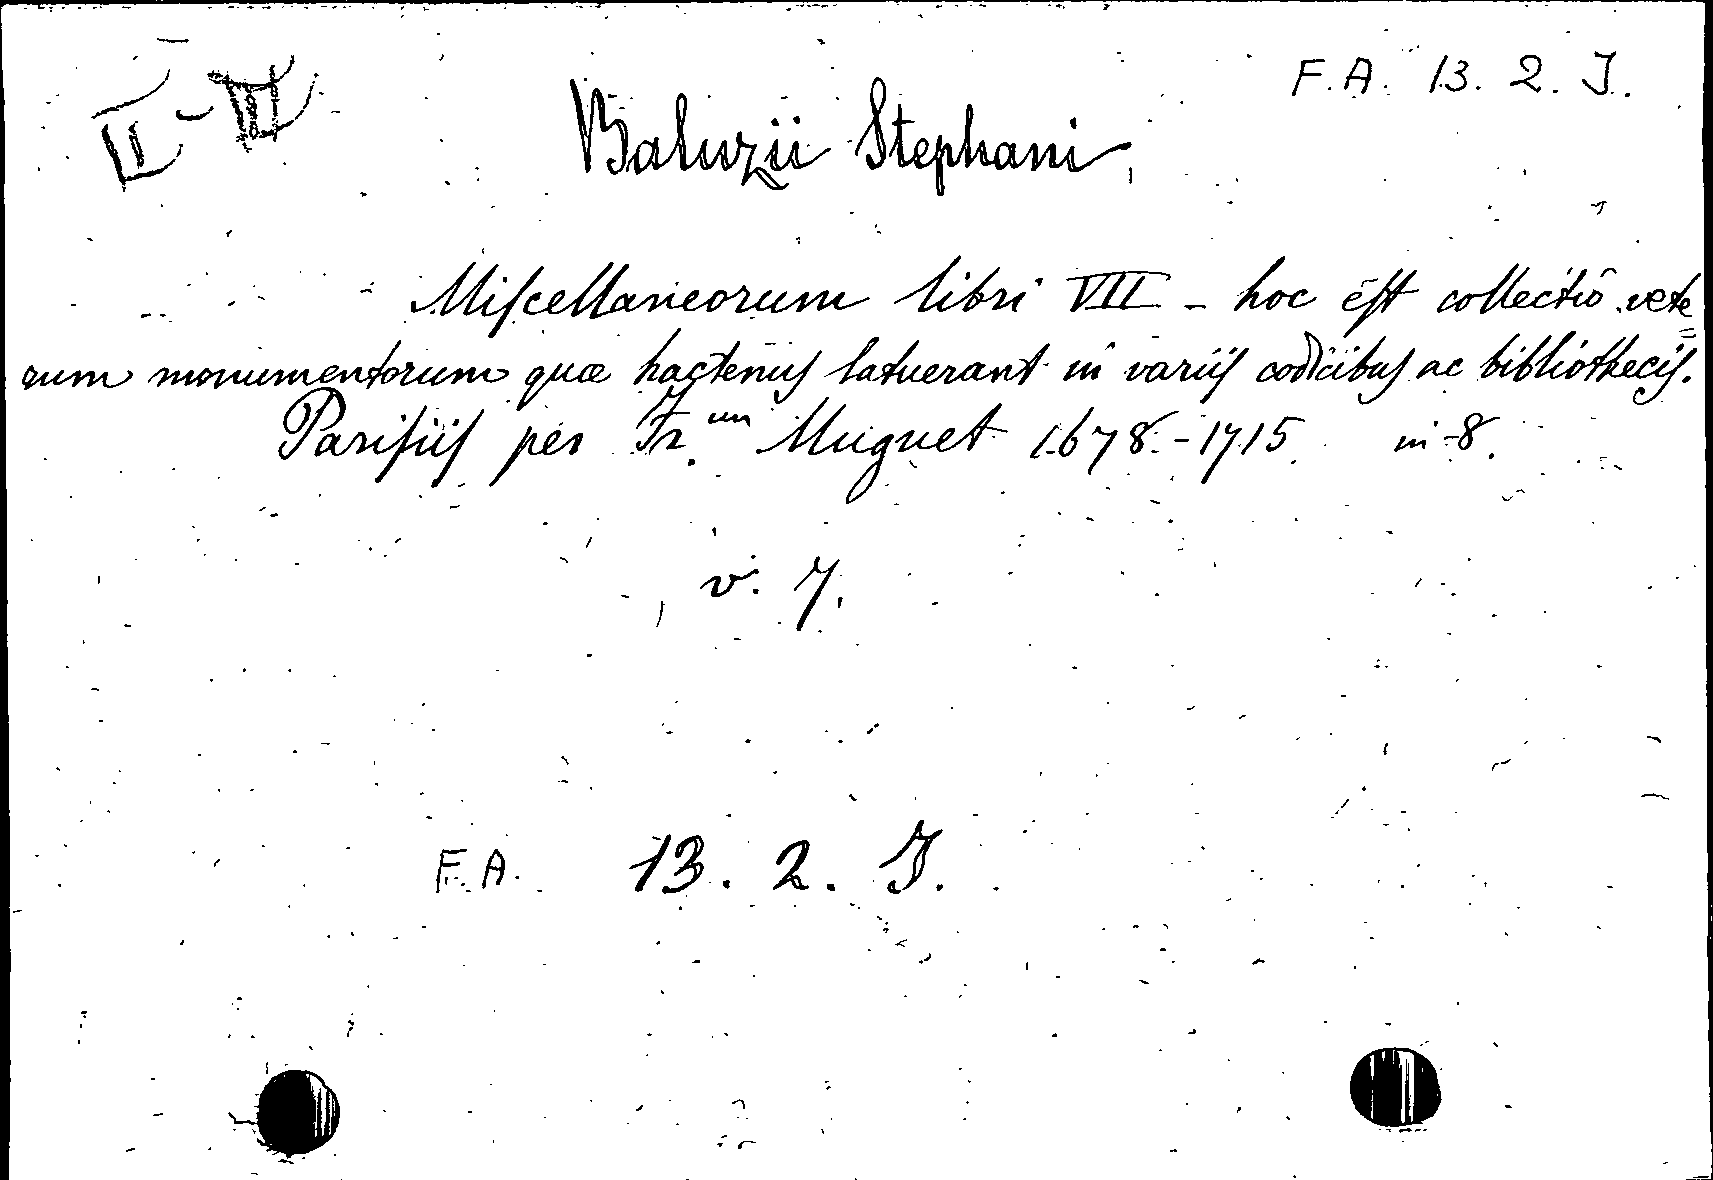 F. A. 13. 2. J.
II - III
Baluzii Stephani
Miſcellaneorum libri VII - hoc eſt collectio vete=
rum monumentorum quæ hactenus latuerant in variis codicibus ac bibliothecis.
Pariſiis per Fr.um Muguet 1678-1715. in-8.
v. 7.
F. A. 13. 2. J.